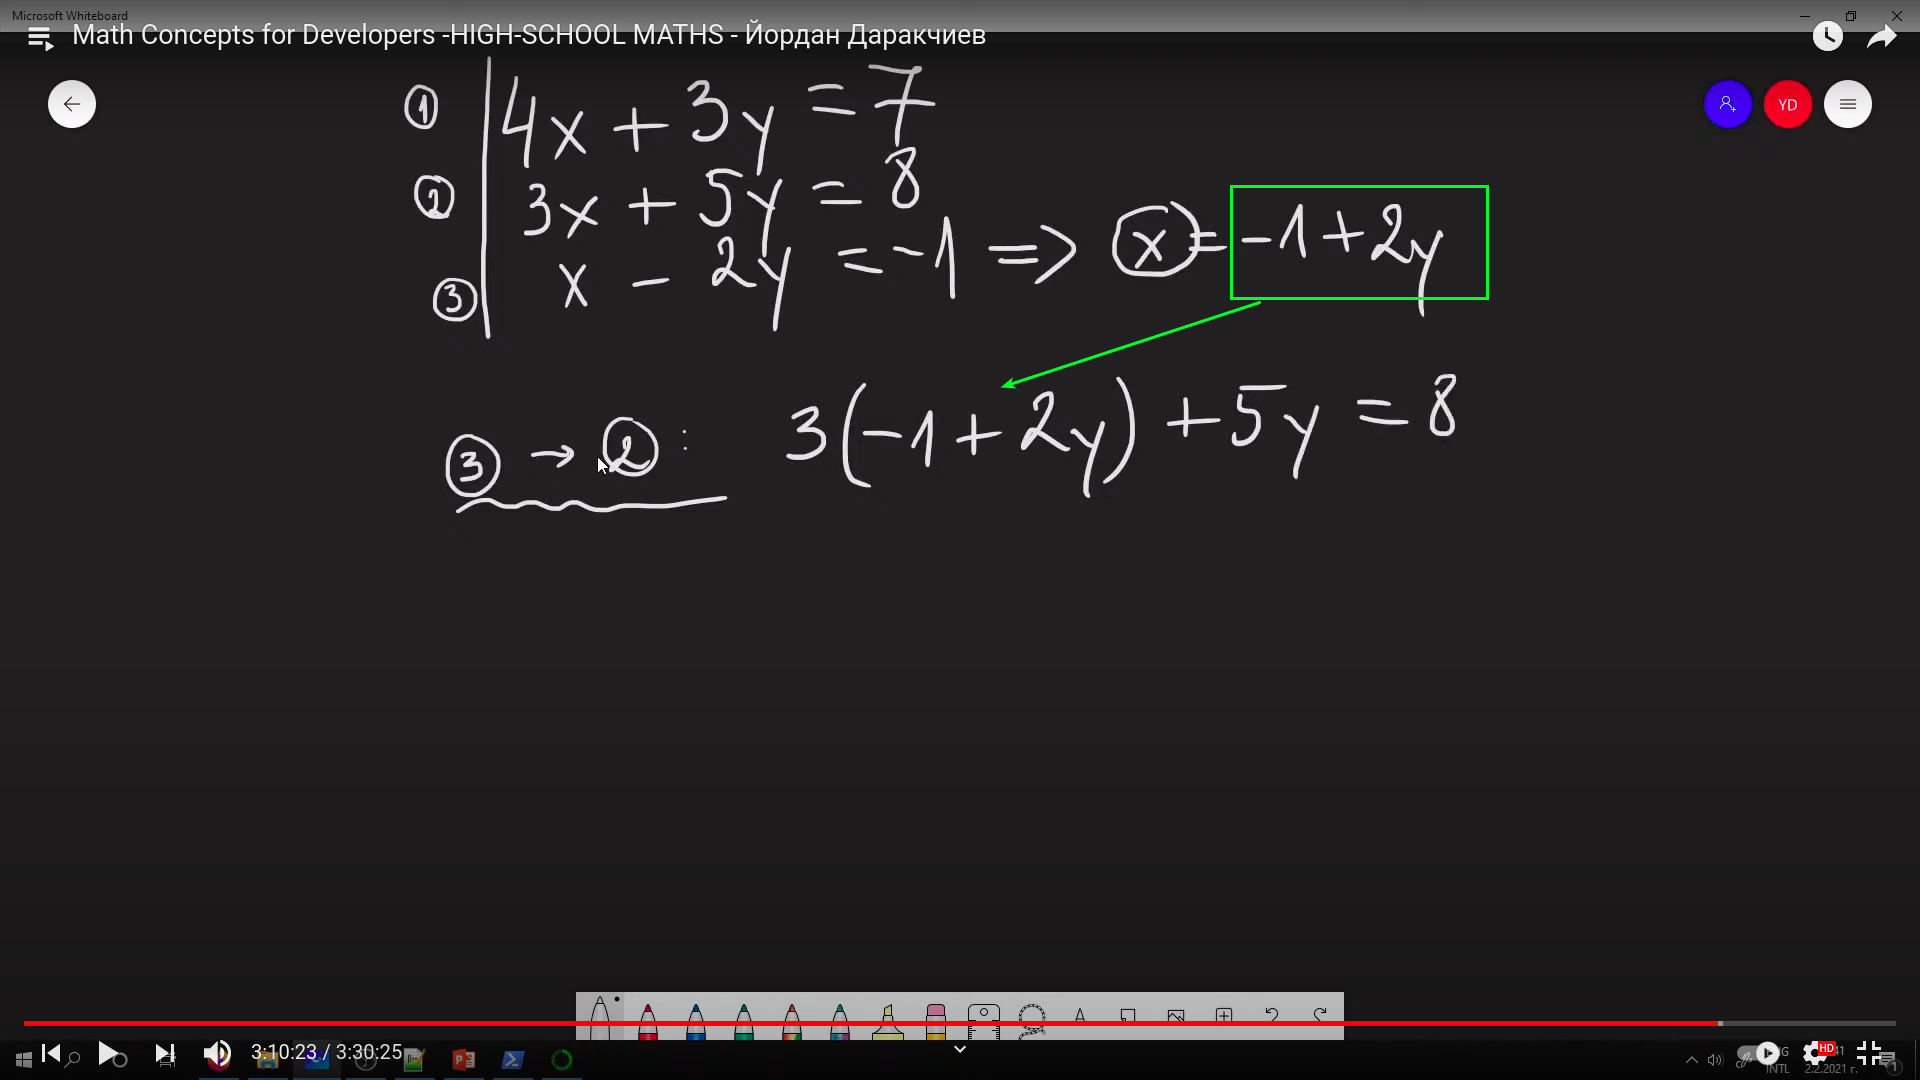 Microsoft Whiteboard
Math Concepts for Developers -HIGH-SCHOOL MATHS - Йордан Даракчиев
YD
① 4x + 3y = 7
② 3x + 5y = 8
③ x - 2y = -1 => x = -1 + 2y
③ → ② : 3(-1 + 2y) + 5y = 8
3:10:23 / 3:30:25
HD
INTL 2.2.2021 г.